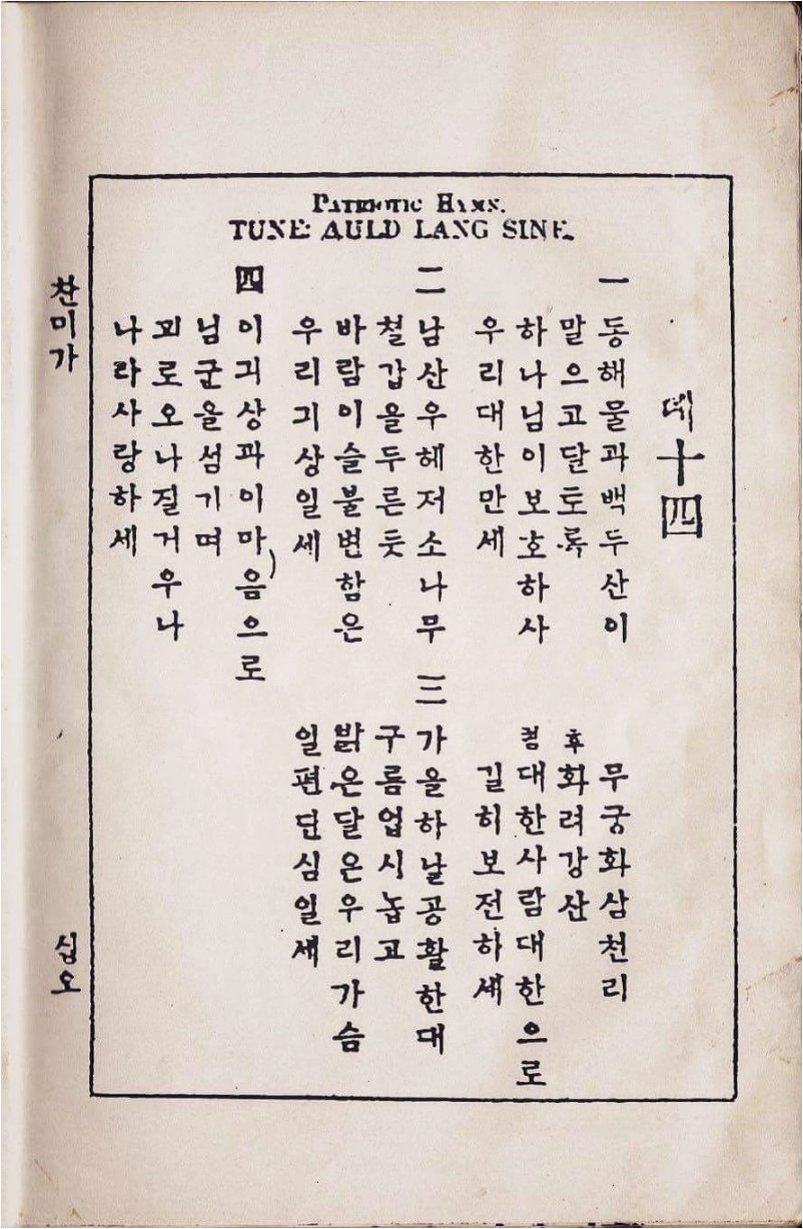 PATRIOTIC HYMN.
TUNE: AULD LANG SINE.
뎨十四
一
동해물과백두산이
말으고달토록
하나님이보호하사
우리대한만세
후렴
무궁화삼천리
화려강산
대한사람대한으로
길히보전하세
二
남산우헤저소나무
철갑을두른듯
바람이슬불변함은
우리긔상일세
三
가을하날공활한대
구름업시놉고
밝은달은우리가슴
일편단심일세
四
이긔상과이마음으로
님군을섬기며
괴로오나질거우나
나라사랑하세
찬미가
십오